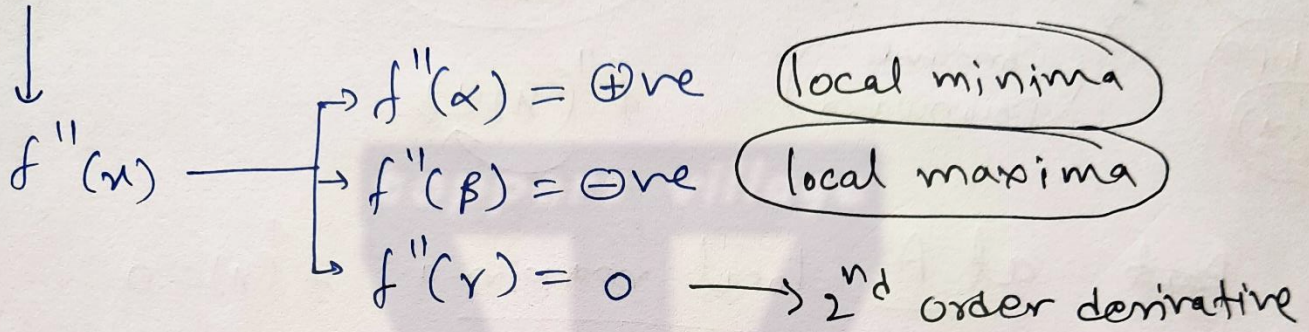 f''(α) = ⊕ve local minima
f''(x) f''(β) = ⊖ve local maxima
f''(γ) = 0 → 2nd order derivative